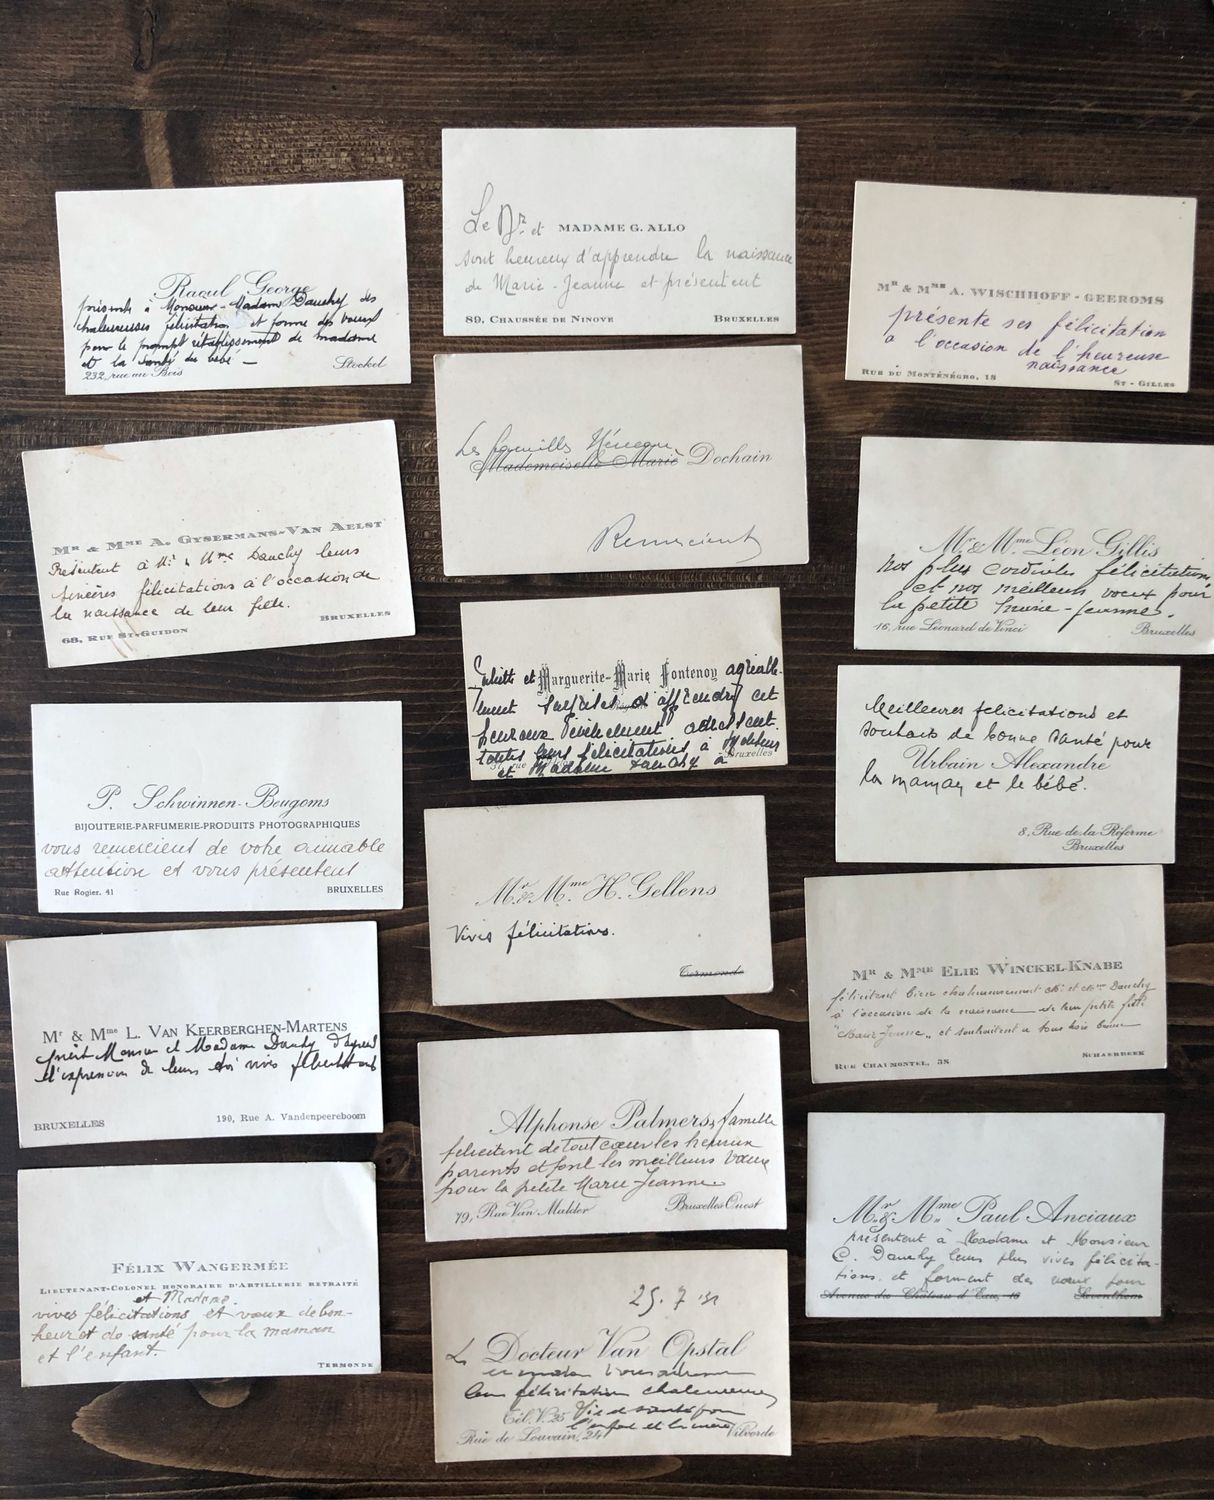 Raoul George
présente à Monsieur - Madame Dauchy des
chaleureuses félicitations et forme des vœux
pour le prompt rétablissement de madame
et la santé du bébé —
232, rue au Bois
Stockel
Mr & Mme A. Gysermans-Van Aelst
Présentent à Mr & Mme Dauchy leurs
sincères félicitations à l'occasion de
la naissance de leur fille.
68, Rue St-Guidon
Bruxelles
P. Schwinnen-Beugoms
BIJOUTERIE-PARFUMERIE-PRODUITS PHOTOGRAPHIQUES
vous remercient de votre aimable
attention et vous présentent
Rue Rogier, 41
BRUXELLES
Mr & Mme L. Van Keerberghen-Martens
prient Monsieur et Madame Dauchy d'agréer
l'expression de leurs vives félicitations
BRUXELLES
190, Rue A. Vandenpeereboom
Félix Wangermée
Lieutenant-Colonel honoraire d'Artillerie retraité
et Madame
vives félicitations et vœux de bon-
heur et de santé pour la maman
et l'enfant.
Termonde
Le Dr. et MADAME G. ALLO
sont heureux d'apprendre la naissance
de Marie-Jeanne et présentent
89, Chaussée de Ninove
Bruxelles
Les familles
Mademoiselle Marie Dochain
Remercient
Juliette et Marguerite-Marie Fontenoy agréable-
ment surprises d'apprendre cet
heureux évènement adressent
toutes leurs félicitations à Monsieur
et Madame Dauchy
rue
Bruxelles
Mr & Mme H. Gellens
Vives félicitations.
Termonde
Alphonse Palmers & famille
félicitent de tout cœur les heureux
parents et font les meilleurs vœux
pour la petite Marie-Jeanne
79, Rue Van Mulder
Bruxelles Ouest
25. 7 31
Le Docteur Van Opstal
leur félicitation chaleureuse
Tél. V. 25
l'enfant et la mère
Rue de Louvain, 24
Vilvorde
Mr & Mme A. Wischhoff-Geeroms
présente ses félicitation
a l'occasion de l'heureuse
naissance
Rue du Monténégro, 18
St-Gilles
Mr & Mme Léon Gillis
Nos plus cordiales félicitations
et nos meilleurs vœux pour
la petite Marie-Jeanne.
16, rue Léonard de Vinci
Bruxelles
Meilleures félicitations et
souhaits de bonne santé pour
Urbain Alexandre
la maman et le bébé.
8, Rue de la Réforme
Bruxelles
Mr & Mme Elie Winckel-Knabe
félicitent bien chaleureusement Mr et Mme Dauchy
à l'occasion de la naissance de leur petite fille
et souhaitent à tous trois bonne
Rue Chaumontel, 38
Schaerbeek
Mr & Mme Paul Anciaux
présentent à Madame et Monsieur
C. Dauchy leurs plus vives félicita-
tions et forment des vœux pour
Avenue du Château d'Eau, 18